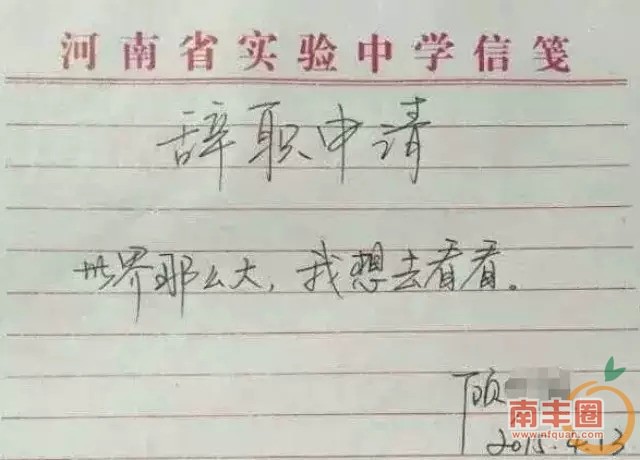 河南省实验中学信笺
辞职申请
世界那么大，我想去看看。
顾
南丰圈
www.nfquan.com
2015.4.13